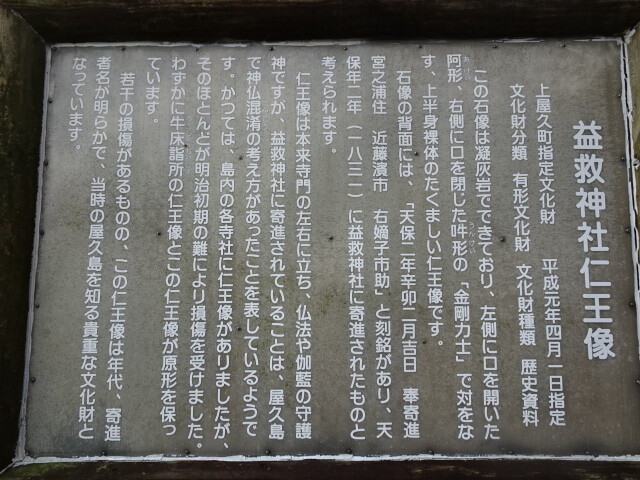 益救神社仁王像
上屋久町指定文化財　平成元年四月一日指定
文化財分類　有形文化財　文化財種類　歴史資料
この石像は凝灰岩でできており、左側に口を開いた
阿形、右側に口を閉じた吽形の「金剛力士」で対をな
す、上半身裸体のたくましい仁王像です。
石像の背面には、「天保二年辛卯二月吉日　奉寄進
宮之浦住　近藤濱市　右嫡子市助」と刻銘があり、天
保年二年（一八三一）に益救神社に寄進されたものと
考えられます。
仁王像は本来寺門の左右に立ち、仏法や伽藍の守護
神ですが、益救神社に寄進されていることは、屋久島
で神仏混淆の考え方があったことを表しているようで
す。かつては、島内の各寺社に仁王像がありましたが、
そのほとんどが明治初期の難により損傷を受けました。
わずかに牛床詣所の仁王像とこの仁王像が原形を保っ
ています。
若干の損傷があるものの、この仁王像は年代、寄進
者名が明らかで、当時の屋久島を知る貴重な文化財と
なっています。